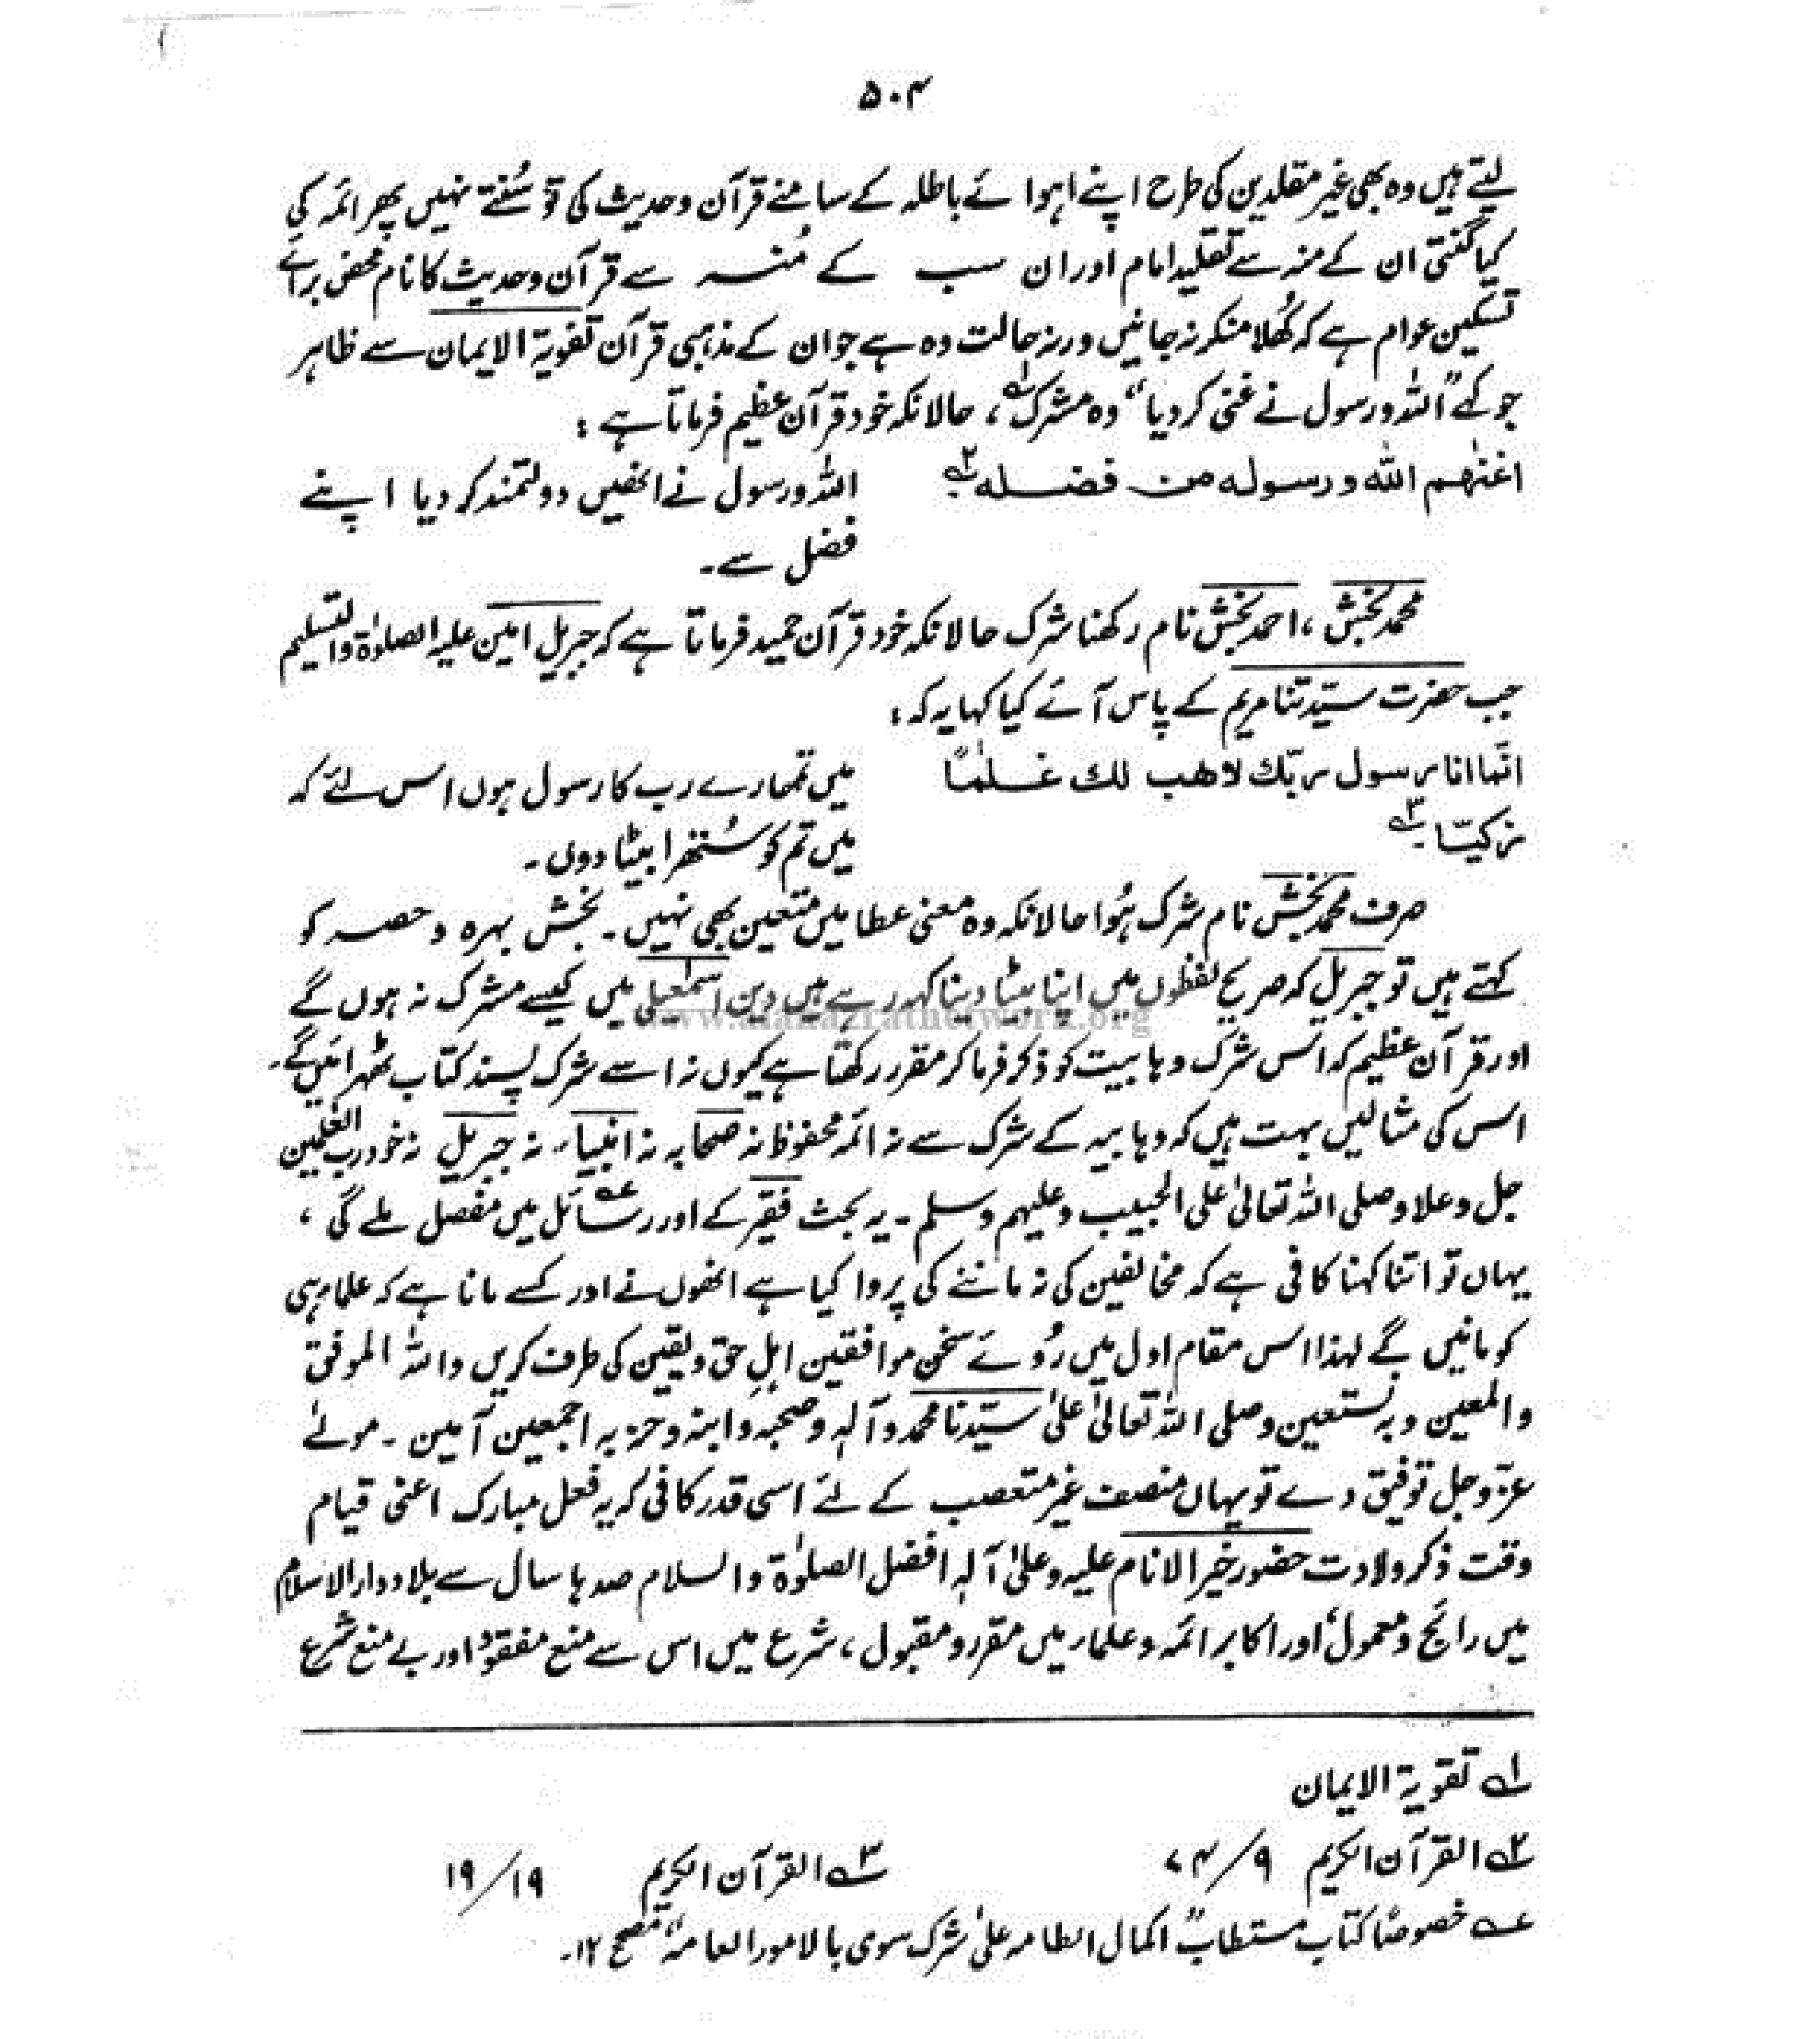 ۵۰۴
لیتے ہیں وہ بھی غیر مقلدین کی طرح اپنے اہوائے باطلہ کے سامنے قرآن و حدیث کی تو سُنتے نہیں پھر ائمہ کی
کیا گنتی ان کے منہ سے تقلید امام اور ان سب کے مُنہ سے قرآن و حدیث کا نام محض برائے
تسکین عوام ہے کہ کُھلا منکر نہ جانیں ورنہ حالت وہ ہے جو ان کے مذہبی قرآن تقویۃ الایمان سے ظاہر
جو کہے "اللہ و رسول نے غنی کر دیا" وہ مشرک۱؎، حالانکہ خود قرآن عظیم فرماتا ہے :
اغنٰهم الله ورسوله من فضله۲؎ اللہ و رسول نے انھیں دولتمند کر دیا اپنے
فضل سے۔
محمد بخش، احمد بخش نام رکھنا شرک حالانکہ خود قرآن حمید فرماتا ہے کہ جبریل امین علیہ الصلوٰۃ والتسلیم
جب حضرت سیّدتنا مریم کے پاس آئے کیا کہا یہ کہ :
انّما انا رسول ربّك لاهب لك غلٰمًا میں تمہارے رب کا رسول ہوں اس لئے کہ
زكیّا۳؎ میں تم کو سُتھرا بیٹا دوں۔
صرف محمد بخش نام شرک ہُوا حالانکہ وہ معنی عطا میں متعین بھی نہیں۔ بخش بہرہ و حصہ کو
کہتے ہیں تو جبریل کہ صریح لفظوں میں اپنا بیٹا دینا کہہ رہے ہیں دین اسمٰعیلی میں کیسے مشرک نہ ہوں گے
اور قرآن عظیم کہ اس شرک وہابیت کو ذکر فرما کر مقرر رکھتا ہے کیوں نہ اسے شرک پسند کتاب ٹھہرائیں گے۔
اس کی مثالیں بہت ہیں کہ وہابیہ کے شرک سے نہ ائمہ محفوظ نہ صحابہ نہ انبیاء نہ جبریل نہ خود رب العٰلمین
جل و علا وصلی اللہ تعالیٰ علی الحبیب وعلیہم وسلم۔ یہ بحث فقیر کے اور رسائل عہ میں مفصل ملے گی،
یہاں تو اتنا کہنا کافی ہے کہ مخالفین کی نہ ماننے کی پروا کیا ہے انھوں نے اور کسے مانا ہے کہ علماء ہی
کو مانیں گے لہذا اس مقام اول میں رُوئے سخن موافقین اہلِ حق و یقین کی طرف کریں واللہ الموفق
والمعین وبہ نستعین وصلی اللہ تعالیٰ علیٰ سیّدنا محمد وآلہٖ وصحبہٖ وابنہٖ وحزبہ اجمعین آمین۔ مولےٰ
عزّوجل توفیق دے تو یہاں منصف غیر متعصب کے لئے اسی قدر کافی کہ یہ فعل مبارک اعنی قیام
وقت ذکر ولادت حضور خیر الانام علیہ وعلیٰ آلہٖ افضل الصلوٰۃ والسلام صدہا سال سے بلاد دارالاسلام
میں رائج و معمول، اور اکابر ائمہ و علماء میں مقرر و مقبول، شرع میں اس سے منع مفقود، اور بے منع شرع
۱؎ تقویۃ الایمان
۲؎ القرآن الکریم ۹/۷۴ ۳؎ القرآن الکریم ۱۹/۱۹
عہ خصوصًا کتاب مستطاب "اکمال الطامہ علیٰ شرک سوی بالامور العامہ" مصحح ۱۲۔